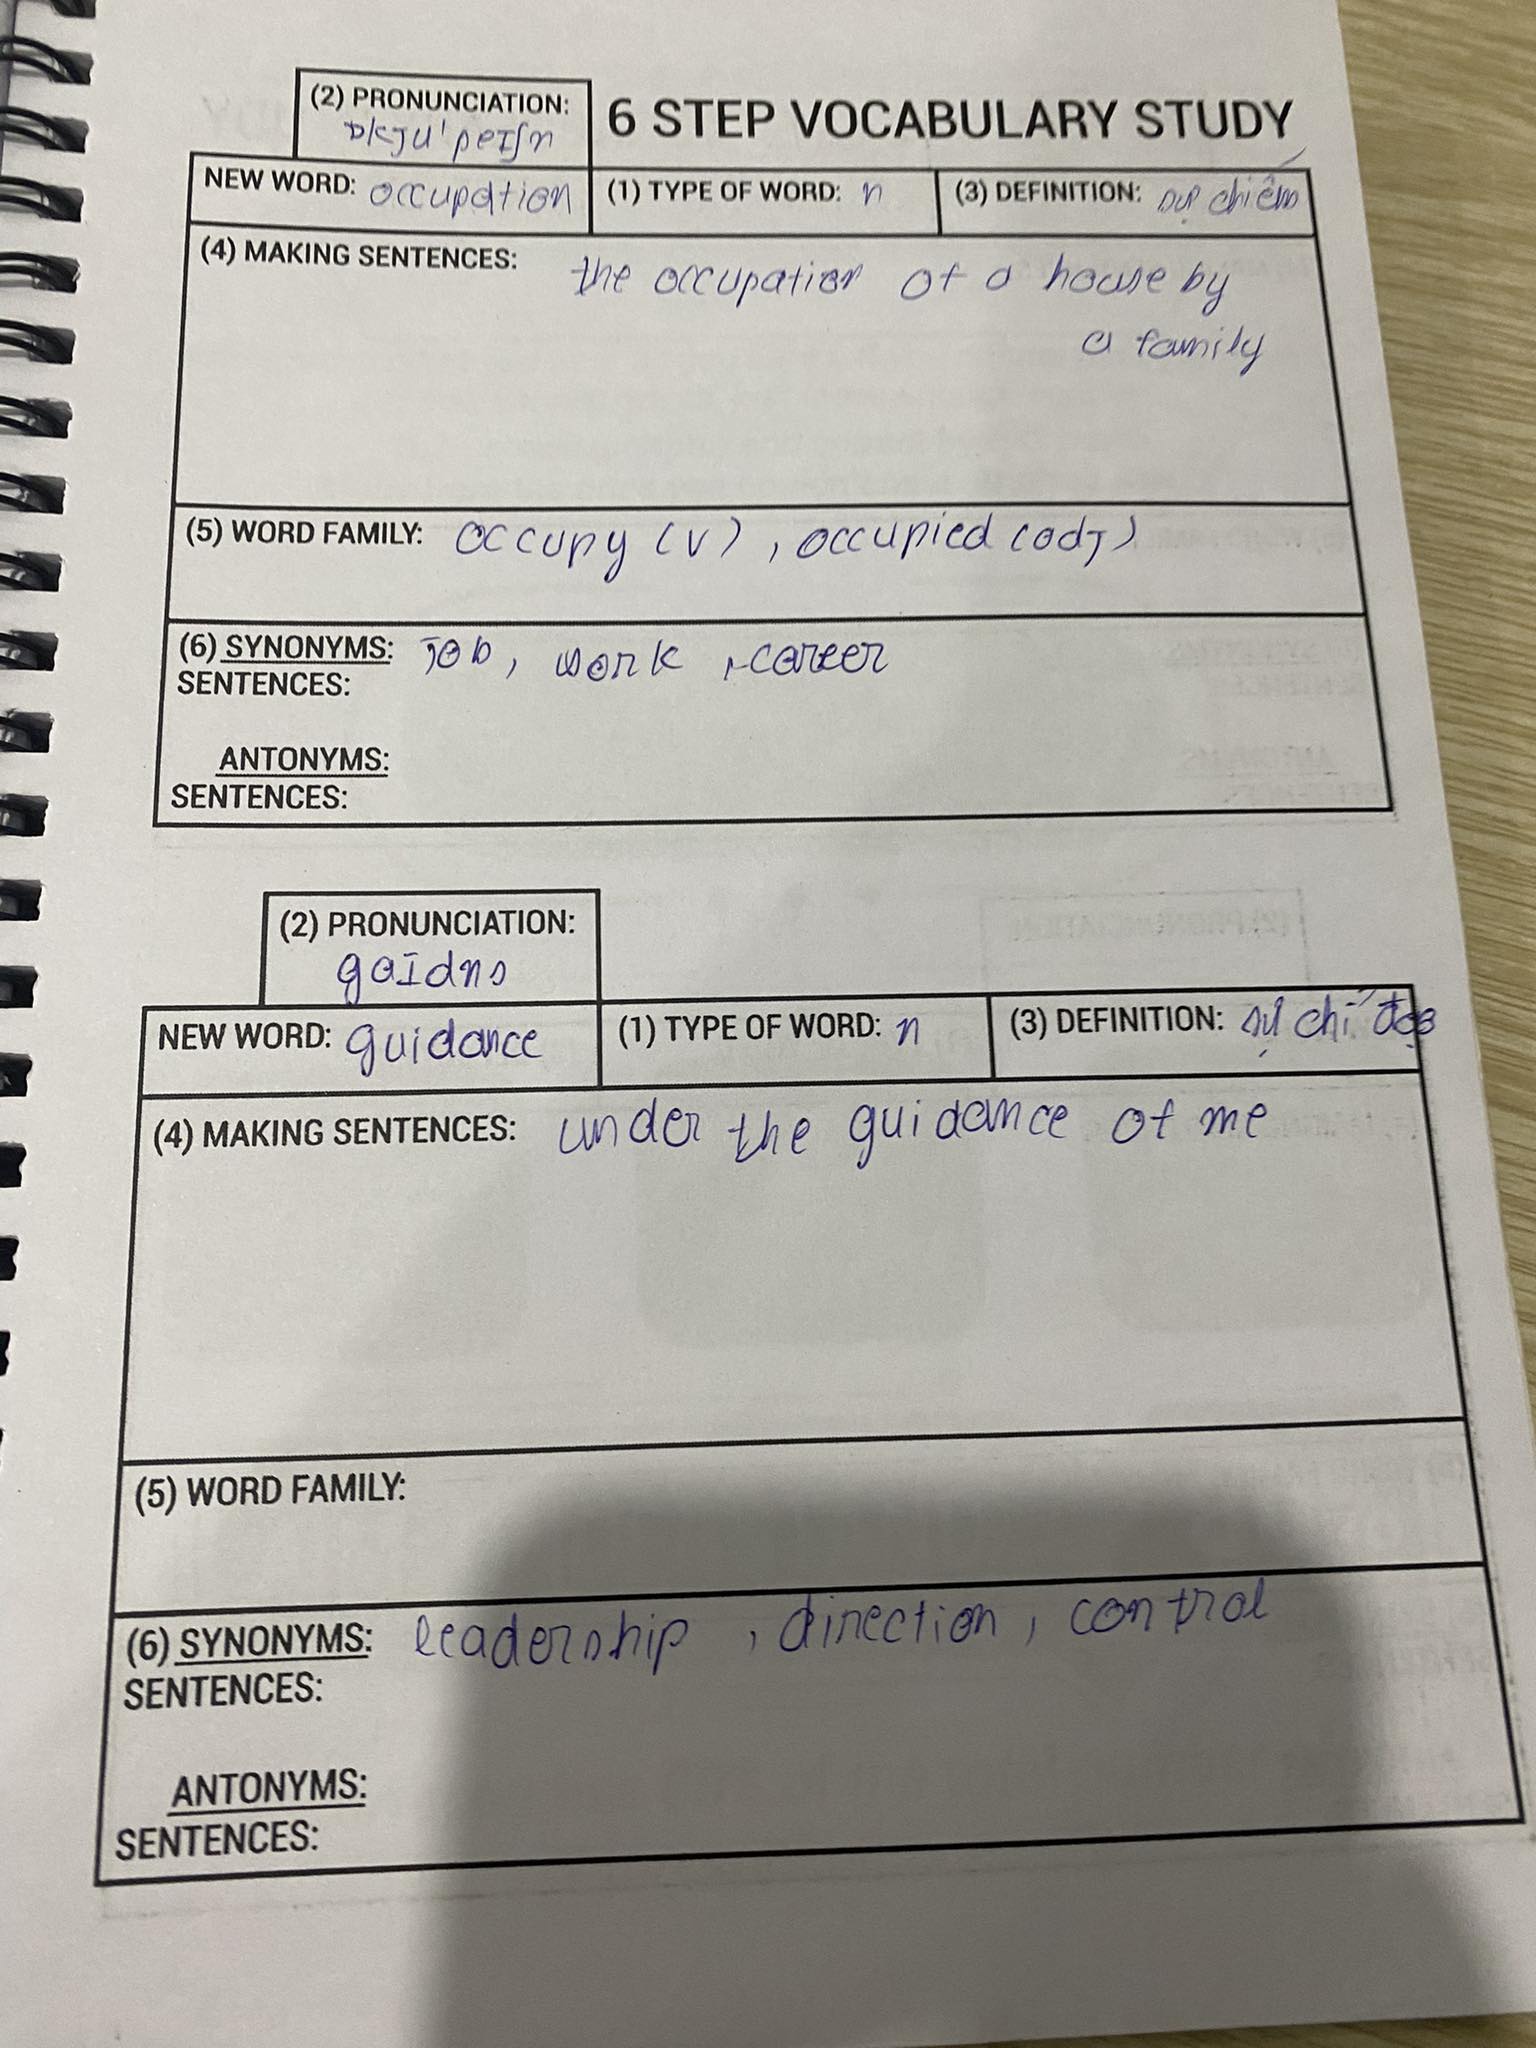 (2) PRONUNCIATION:
6 STEP VOCABULARY STUDY
NEW WORD: occupation
(1) TYPE OF WORD: n
(3) DEFINITION: sự chiếm
(4) MAKING SENTENCES: the occupation of a house by
a family
(5) WORD FAMILY: occupy (v), occupied (adj)
(6) SYNONYMS: job, work, career
SENTENCES:
ANTONYMS:
SENTENCES:
(2) PRONUNCIATION:
gaIdns
NEW WORD: guidance
(1) TYPE OF WORD: n
(3) DEFINITION: sự chỉ đạo
(4) MAKING SENTENCES: under the guidance of me
(5) WORD FAMILY:
(6) SYNONYMS: leadership, direction, control
SENTENCES:
ANTONYMS:
SENTENCES: